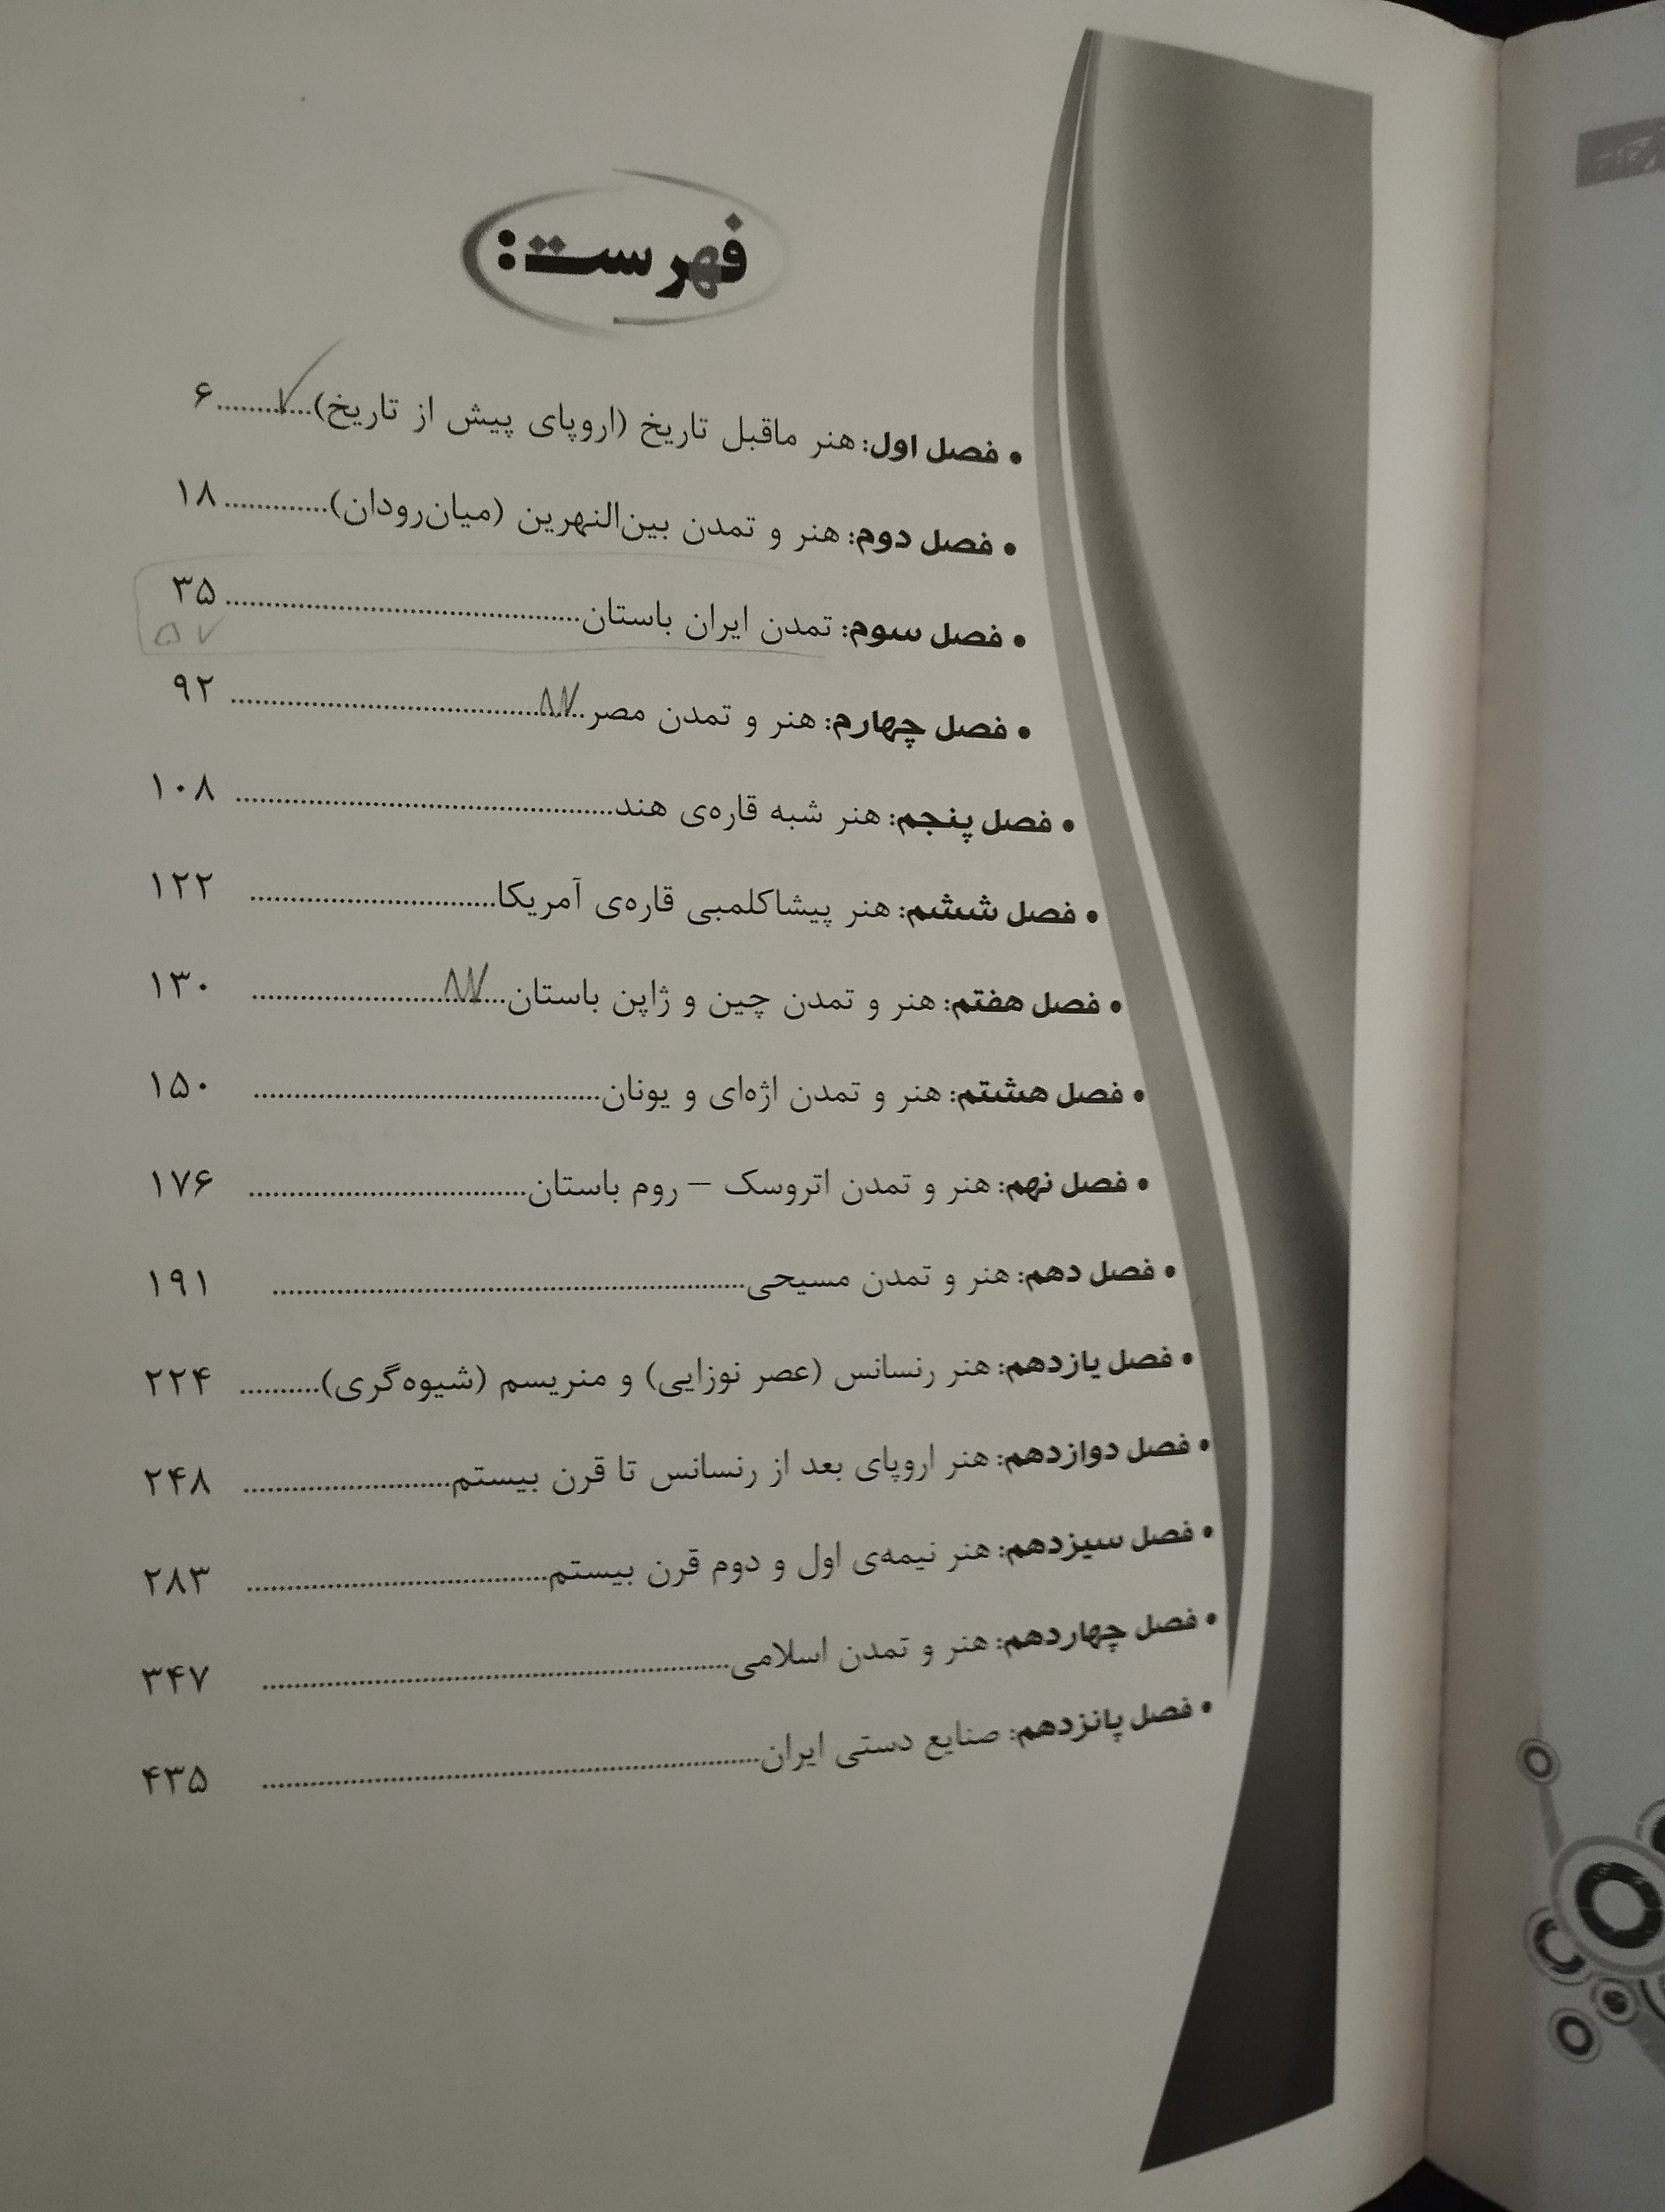 فهرست:
• فصل اول: هنر ماقبل تاریخ (اروپای پیش از تاریخ)............۶
• فصل دوم: هنر و تمدن بین‌النهرین (میان‌رودان)............۱۸
• فصل سوم: تمدن ایران باستان............۳۵
۵۷
• فصل چهارم: هنر و تمدن مصر............۹۲
• فصل پنجم: هنر شبه قاره‌ی هند............۱۰۸
• فصل ششم: هنر پیشاکلمبی قاره‌ی آمریکا............۱۲۲
• فصل هفتم: هنر و تمدن چین و ژاپن باستان............۱۳۰
• فصل هشتم: هنر و تمدن اژه‌ای و یونان............۱۵۰
• فصل نهم: هنر و تمدن اتروسک – روم باستان............۱۷۶
• فصل دهم: هنر و تمدن مسیحی............۱۹۱
• فصل یازدهم: هنر رنسانس (عصر نوزایی) و منریسم (شیوه‌گری)............۲۲۴
• فصل دوازدهم: هنر اروپای بعد از رنسانس تا قرن بیستم............۲۴۸
• فصل سیزدهم: هنر نیمه‌ی اول و دوم قرن بیستم............۲۸۳
• فصل چهاردهم: هنر و تمدن اسلامی............۳۴۷
• فصل پانزدهم: صنایع دستی ایران............۴۳۵